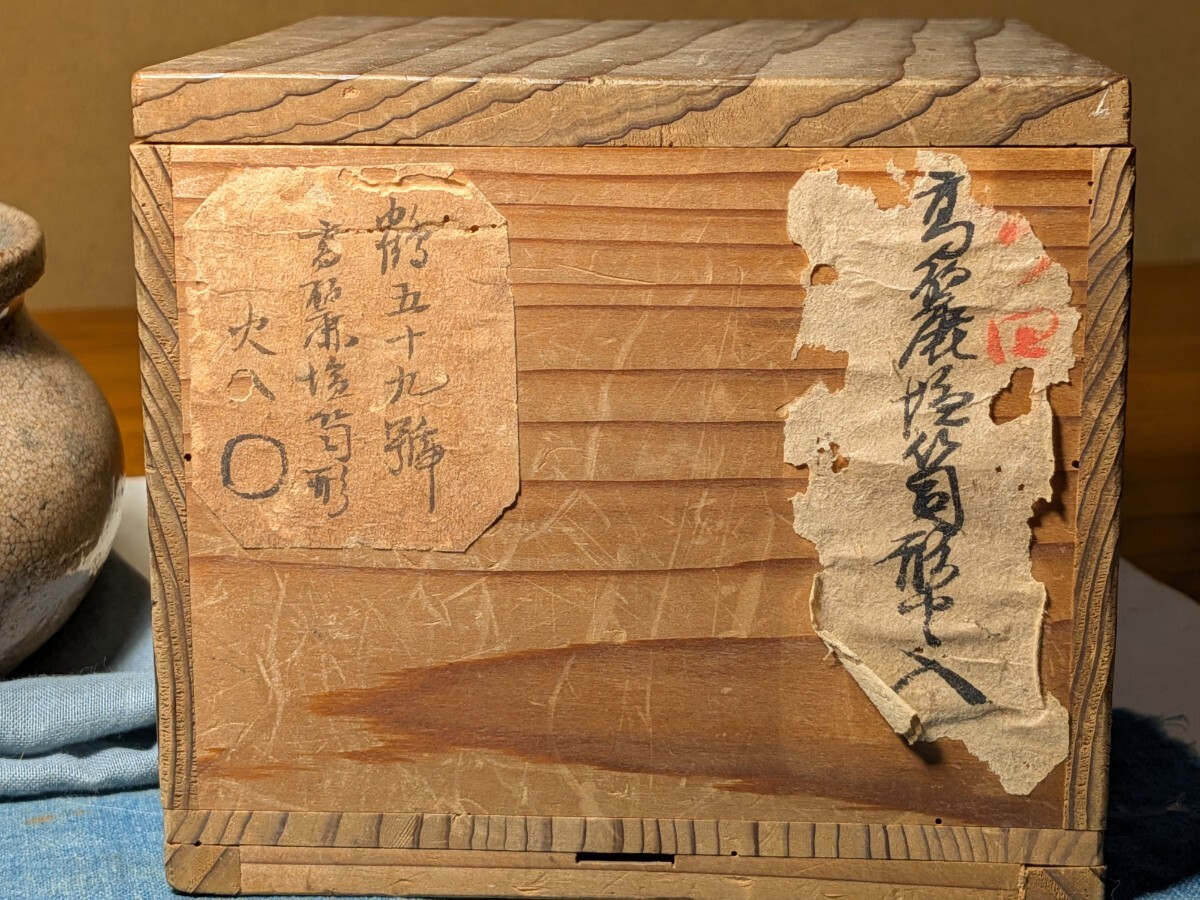 高麗塩筒形火入
鶴五十九號
高麗塩筒形
火入